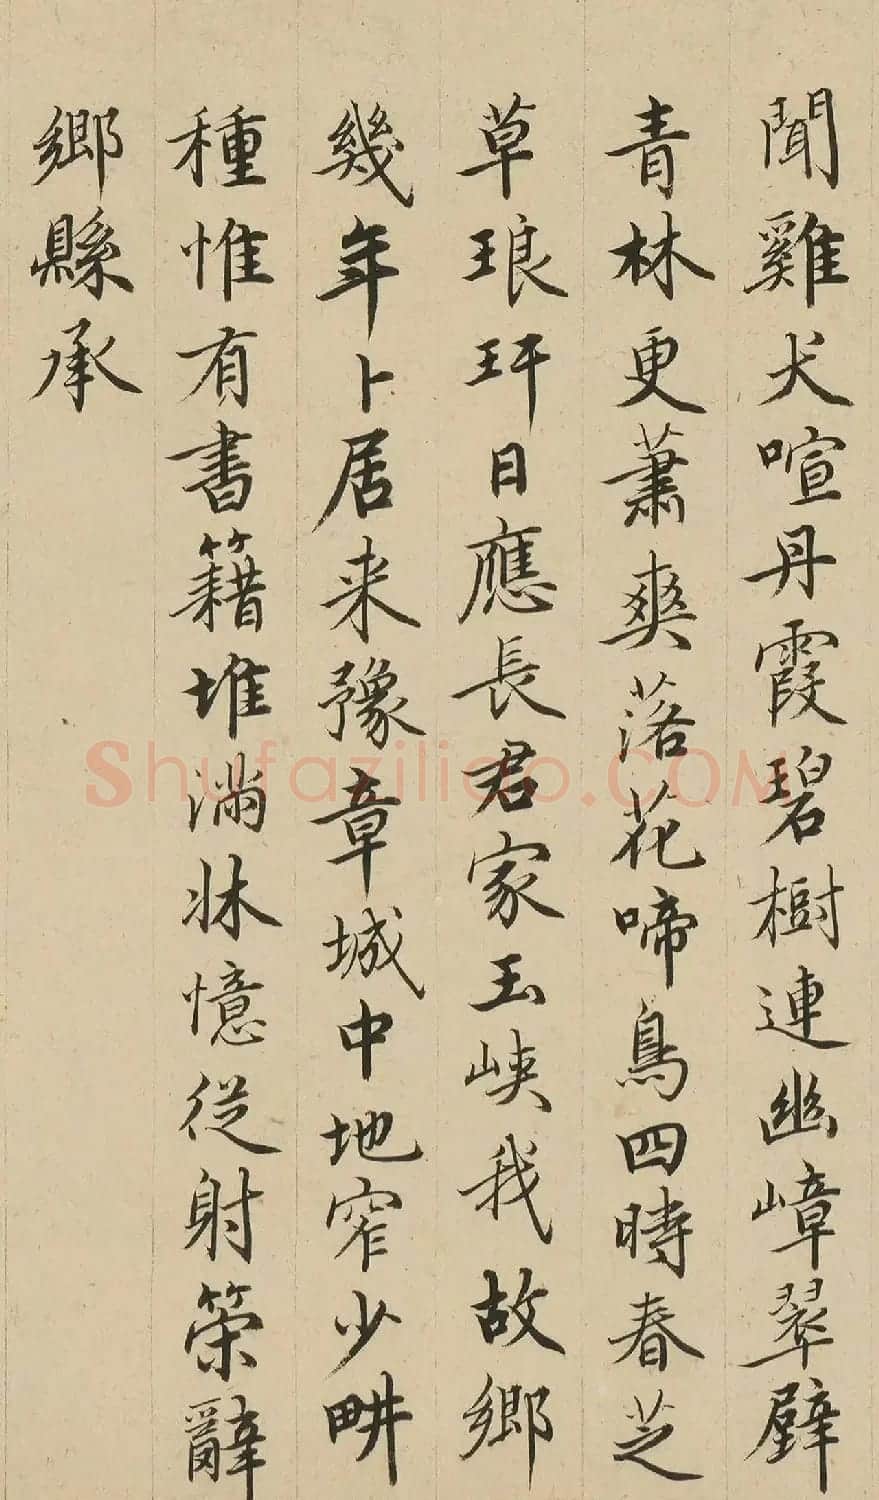 聞雞犬喧丹霞碧樹連幽嶂翠壁
青林更蕭爽落花啼鳥四時春芝
草琅玕日應長君家玉峽我故鄉
幾年卜居来豫章城中地窄少畊
種惟有書籍堆满牀憶從射策辭
鄉縣承
Shufaziliao.COM